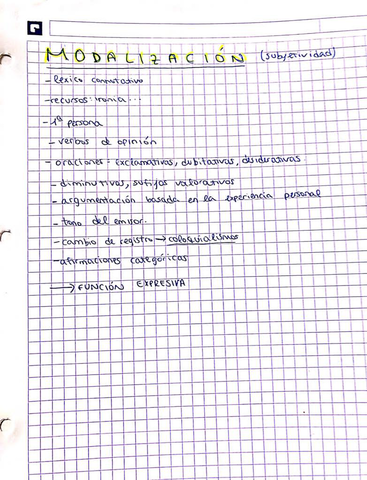 MODALIZACIÓN (subjetividad)
- léxico connotativo
- recursos: ironia...
- 1ª persona
- verbos de opinión
- oraciones - exclamativas, dubitativas, desiderativas
- diminutivas, sufijos valorativos
- argumentación basada en la experiencia personal
- tono del emisor.
- cambio de registro → coloquialismos
- afirmaciones categóricas
→ FUNCIÓN EXPRESIVA